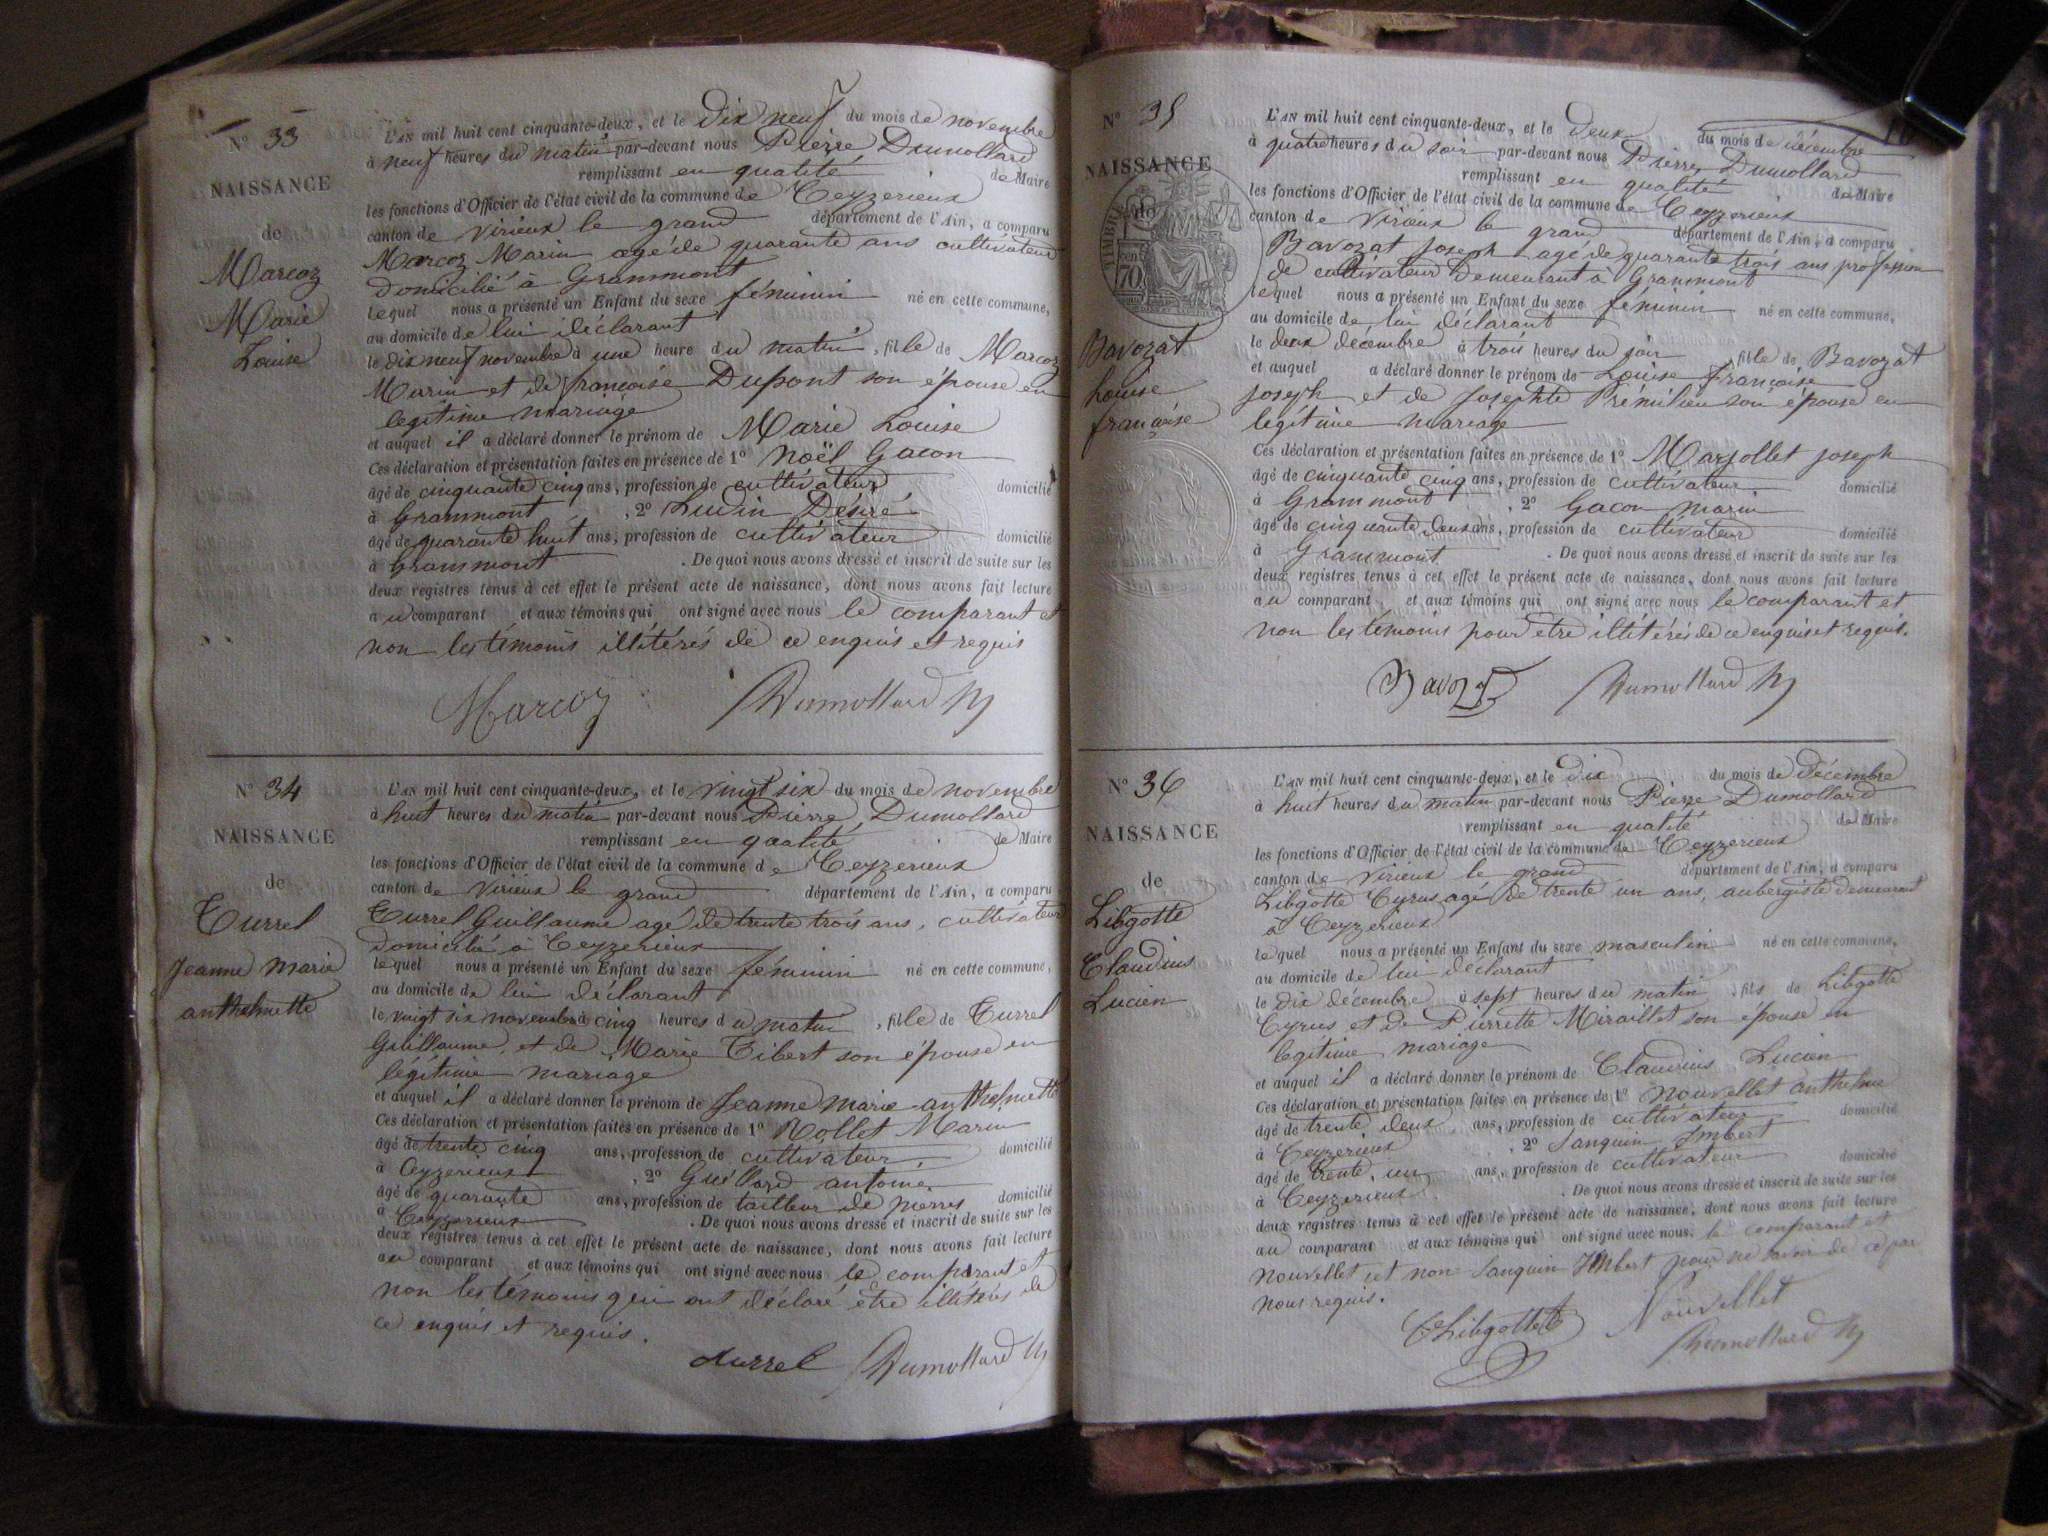 N° 33
NAISSANCE
de
Marcoz
Marie
Louise
L'AN mil huit cent cinquante-deux, et le dix neuf du mois de novembre
à neuf heures du matin par-devant nous Pierre Dumollard
remplissant en qualité de Maire
les fonctions d'Officier de l'état civil de la commune de Ceyzerieux
canton de virieux le grand département de l'Ain, a comparu
Marcoz Marin agé de quarante ans cultivateur
domicilié à Grammont
lequel nous a présenté un Enfant du sexe féminin né en cette commune,
au domicile de lui déclarant
le dix neuf novembre à une heure du matin, fille de Marcoz
Marin et de françoise Dupont son épouse en
legitime mariage
et auquel il a déclaré donner le prénom de Marie Louise
Ces déclaration et présentation faites en présence de 1° Noël Gacon
âgé de cinquante cinq ans, profession de cultivateur domicilié
à Grammont, 2° Ludin Désiré
âgé de quarante huit ans, profession de cultivateur domicilié
à Grammont. De quoi nous avons dressé et inscrit de suite sur les
deux registres tenus à cet effet le présent acte de naissance, dont nous avons fait lecture
au comparant et aux témoins qui ont signé avec nous le comparant et
non les témoins illitérés de ce enquis et requis
Marcoz Dumollard M
N° 34
NAISSANCE
de
Turrel
Jeanne marie
anthelmette
L'AN mil huit cent cinquante-deux, et le vingt six du mois de novembre
à huit heures du matin par-devant nous Pierre Dumollard
remplissant en qualité de Maire
les fonctions d'Officier de l'état civil de la commune de Ceyzerieux
canton de virieux le grand département de l'Ain, a comparu
Turrel Guillaume agé de trente trois ans, cultivateur
domicilié à Ceyzerieux
lequel nous a présenté un Enfant du sexe féminin né en cette commune,
au domicile de lui déclarant
le vingt six novembre à cinq heures du matin, fille de Turrel
Guillaume, et de Marie Tibert son épouse en
légitime mariage
et auquel il a déclaré donner le prénom de Jeanne marie anthelmette
Ces déclaration et présentation faites en présence de 1° Rollet Marin
âgé de trente cinq ans, profession de cultivateur domicilié
à Ceyzerieux, 2° Guillard antoine
âgé de quarante ans, profession de tailleur de pierres domicilié
à Ceyzerieux. De quoi nous avons dressé et inscrit de suite sur les
deux registres tenus à cet effet le présent acte de naissance, dont nous avons fait lecture
au comparant et aux témoins qui ont signé avec nous le comparant et
non les témoins qui ont déclaré être illitérés de
ce enquis et requis.
turrel Dumollard M
N° 35
NAISSANCE
TIMBRE
70
Bavozat
Louise
françoise
L'AN mil huit cent cinquante-deux, et le deux du mois de décembre
à quatre heures du soir par-devant nous Pierre Dumollard
remplissant en qualité de Maire
les fonctions d'Officier de l'état civil de la commune de Ceyzerieux
canton de virieux le grand département de l'Ain, a comparu
Bavozat Joseph agé de quarante trois ans profession
de cultivateur demeurant à Grammont
lequel nous a présenté un Enfant du sexe féminin né en cette commune,
au domicile de lui déclarant
le deux décembre à trois heures du soir fille de Bavozat
et auquel a déclaré donner le prénom de Louise françoise
Joseph et de Josephte Prémilieu son épouse en
légitime mariage
Ces déclaration et présentation faites en présence de 1° Marjollet Joseph
âgé de cinquante cinq ans, profession de cultivateur domicilié
à Grammont, 2° Gacon marin
âgé de cinquante deux ans, profession de cultivateur domicilié
à Grammont. De quoi nous avons dressé et inscrit de suite sur les
deux registres tenus à cet effet le présent acte de naissance, dont nous avons fait lecture
au comparant et aux témoins qui ont signé avec nous le comparant et
non les témoins pour être illitérés de ce enquis et requis.
Bavozat Dumollard M
N° 36
NAISSANCE
de
Libgotte
Claudius
Lucien
L'AN mil huit cent cinquante-deux, et le dix du mois de décembre
à huit heures du matin par-devant nous Pierre Dumollard
remplissant en qualité de Maire
les fonctions d'Officier de l'état civil de la commune de Ceyzerieux
canton de virieux le grand département de l'Ain, a comparu
Libgotte Cyrus agé de trente un ans, aubergiste demeurant
à Ceyzerieux
lequel nous a présenté un Enfant du sexe masculin né en cette commune,
au domicile de lui déclarant
le dix décembre à sept heures du matin, fils de Libgotte
Cyrus et de Pierrette Miraillet son épouse en
legitime mariage
et auquel il a déclaré donner le prénom de Claudius Lucien
Ces déclaration et présentation faites en présence de 1° nouvellet anthelme
âgé de trente deux ans, profession de cultivateur domicilié
à Ceyzerieux, 2° Sanguin Imbert
âgé de trente un ans, profession de cultivateur domicilié
à Ceyzerieux. De quoi nous avons dressé et inscrit de suite sur les
deux registres tenus à cet effet le présent acte de naissance, dont nous avons fait lecture
au comparant et aux témoins qui ont signé avec nous, le comparant et
Nouvellet et non Sanguin Imbert pour ne savoir de ce par
nous requis.
Libgotte Nouvellet
Dumollard M